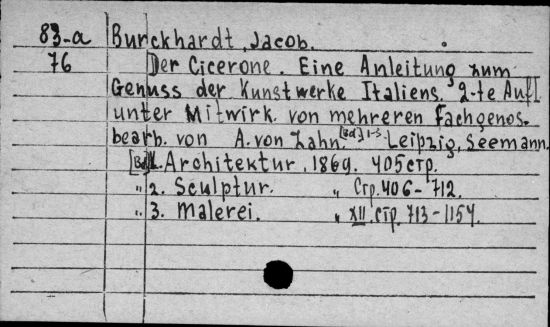 83-a Burckhardt, Jacob.
76 Der Cicerone. Eine Anleitung zum
Genuss der Kunstwerke Italiens. 2-te Aufl.
unter Mitwirk. von mehreren Fachgenos.
bearb. von A. von Zahn. [Bd.] 1-3. Leipzig, Seemann.
[Bd.] 1. Architektur, 1869. 405 стр.
" 2. Sculptur. " Стр. 406-712.
" 3. Malerei. " XII. стр. 713-1154.